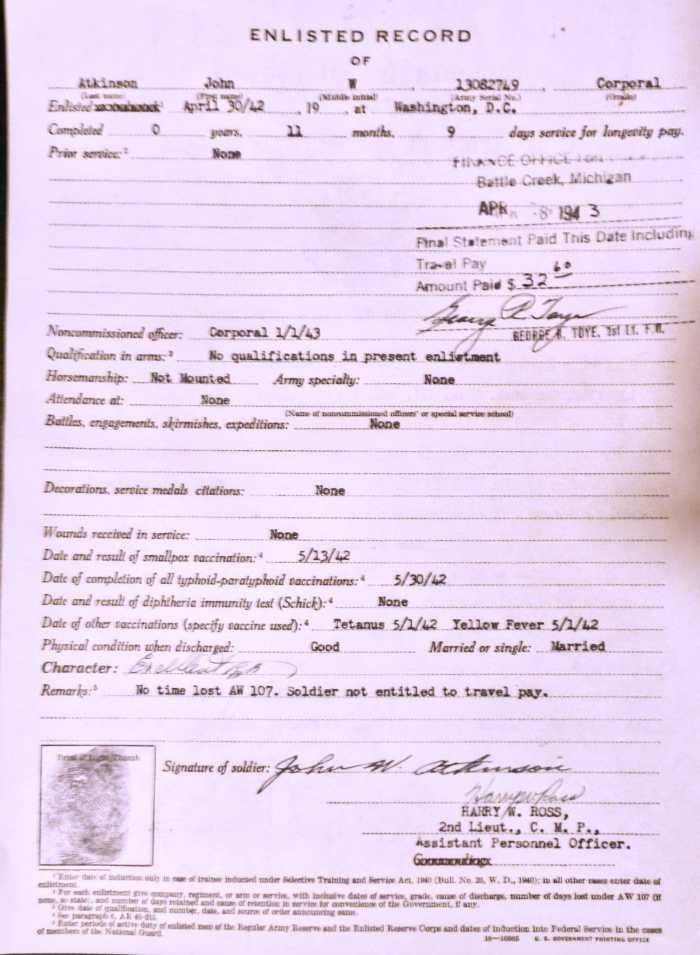 ENLISTED RECORD
OF
Atkinson John W , 13082749 , Corporal
(Last name) (First name) (Middle initial) (Army Serial No.) (Grade)
Enlisted April 30/42 , 19 at Washington, D.C.
Completed 0 years, 11 months, 9 days service for longevity pay.
Prior service:² None
FINANCE OFFICE
Battle Creek, Michigan
APR 8 1943
Final Statement Paid This Date Including
Travel Pay
Amount Paid $ 32 60
George R. Toye
GEORGE R. TOYE, 1st Lt. F.D.
Noncommissioned officer: Corporal 1/1/43
Qualification in arms:³ No qualifications in present enlistment
Horsemanship: Not Mounted Army specialty: None
Attendance at: None
(Name of noncommissioned officers' or special service school)
Battles, engagements, skirmishes, expeditions: None
Decorations, service medals citations: None
Wounds received in service: None
Date and result of smallpox vaccination:⁴ 5/13/42
Date of completion of all typhoid-paratyphoid vaccinations:⁴ 5/30/42
Date and result of diphtheria immunity test (Schick):⁴ None
Date of other vaccinations (specify vaccine used):⁴ Tetanus 5/1/42 Yellow Fever 5/1/42
Physical condition when discharged: Good Married or single: Married
Character: Excellent
Remarks:⁵ No time lost AW 107. Soldier not entitled to travel pay.
Print of Right Thumb
Signature of soldier: John W. Atkinson
Harry W Ross
HARRY W. ROSS,
2nd Lieut., C. M. P.,
Assistant Personnel Officer.
¹ Enter date of induction only in case of trainee inducted under Selective Training and Service Act, 1940 (Bull. No. 25, W. D., 1940); in all other cases enter date of
enlistment.
² For each enlistment give company, regiment, or arm or service, with inclusive dates of service, grade, cause of discharge, number of days lost under AW 107 (if
none, so state), and number of days retained and cause of retention in service for convenience of the Government, if any.
³ Give date of qualification, and number, date, and source of order announcing same.
⁴ See paragraph 6, AR 40-210.
⁵ Enter periods of active duty of enlisted men of the Regular Army Reserve and the Enlisted Reserve Corps and dates of induction into Federal Service in the cases
of members of the National Guard.
U. S. GOVERNMENT PRINTING OFFICE